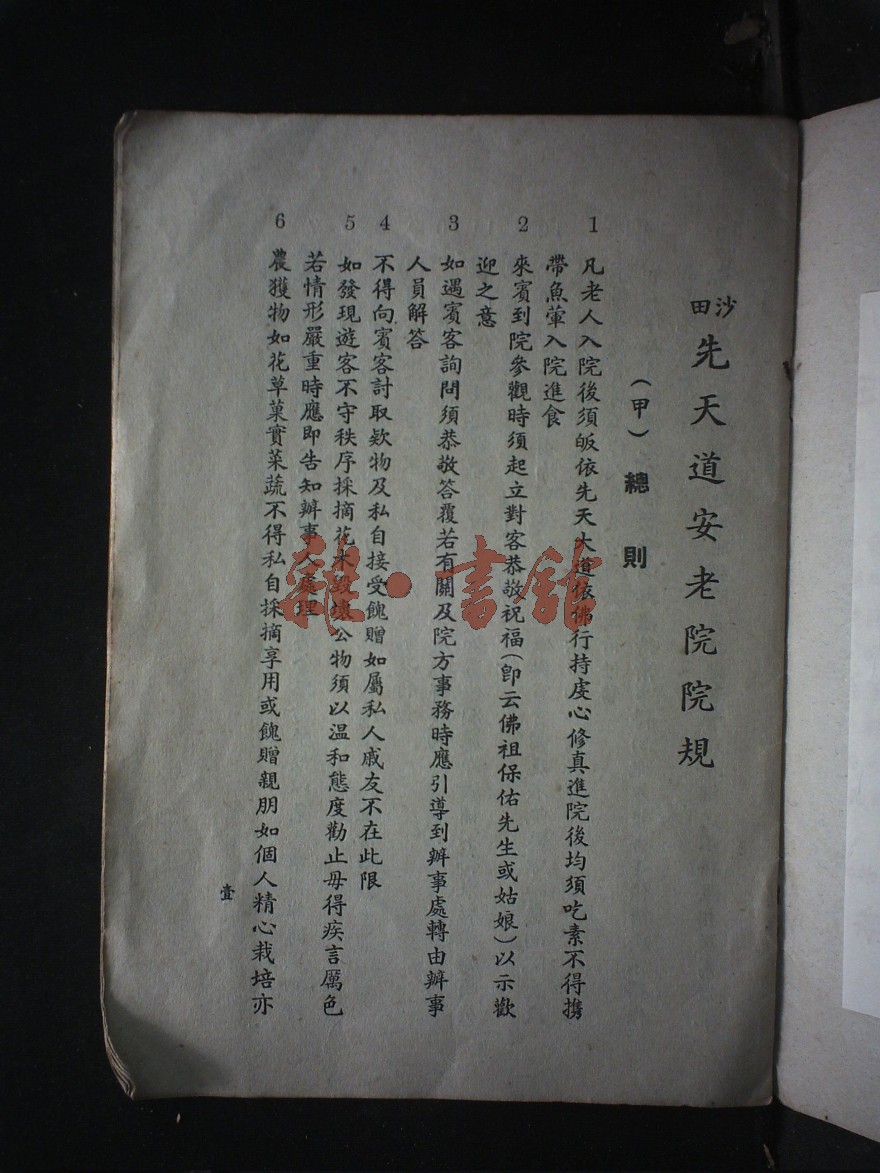 沙田先天道安老院院規
（甲）總則
1 凡老人入院後須皈依先天大道依佛行持虔心修真進院後均須吃素不得携
帶魚葷入院進食
2 來賓到院參觀時須起立對客恭敬祝福（卽云佛祖保佑先生或姑娘）以示歡
迎之意
3 如遇賓客詢問須恭敬答覆若有關及院方事務時應引導到辦事處轉由辦事
人員解答
4 不得向賓客討取欵物及私自接受餽贈如屬私人戚友不在此限
5 如發現遊客不守秩序採摘花木毀壞公物須以温和態度勸止毋得疾言厲色
若情形嚴重時應即告知辦事人處理
6 農獲物如花草菓實菜蔬不得私自採摘享用或餽贈親朋如個人精心栽培亦
壹
雜·書館